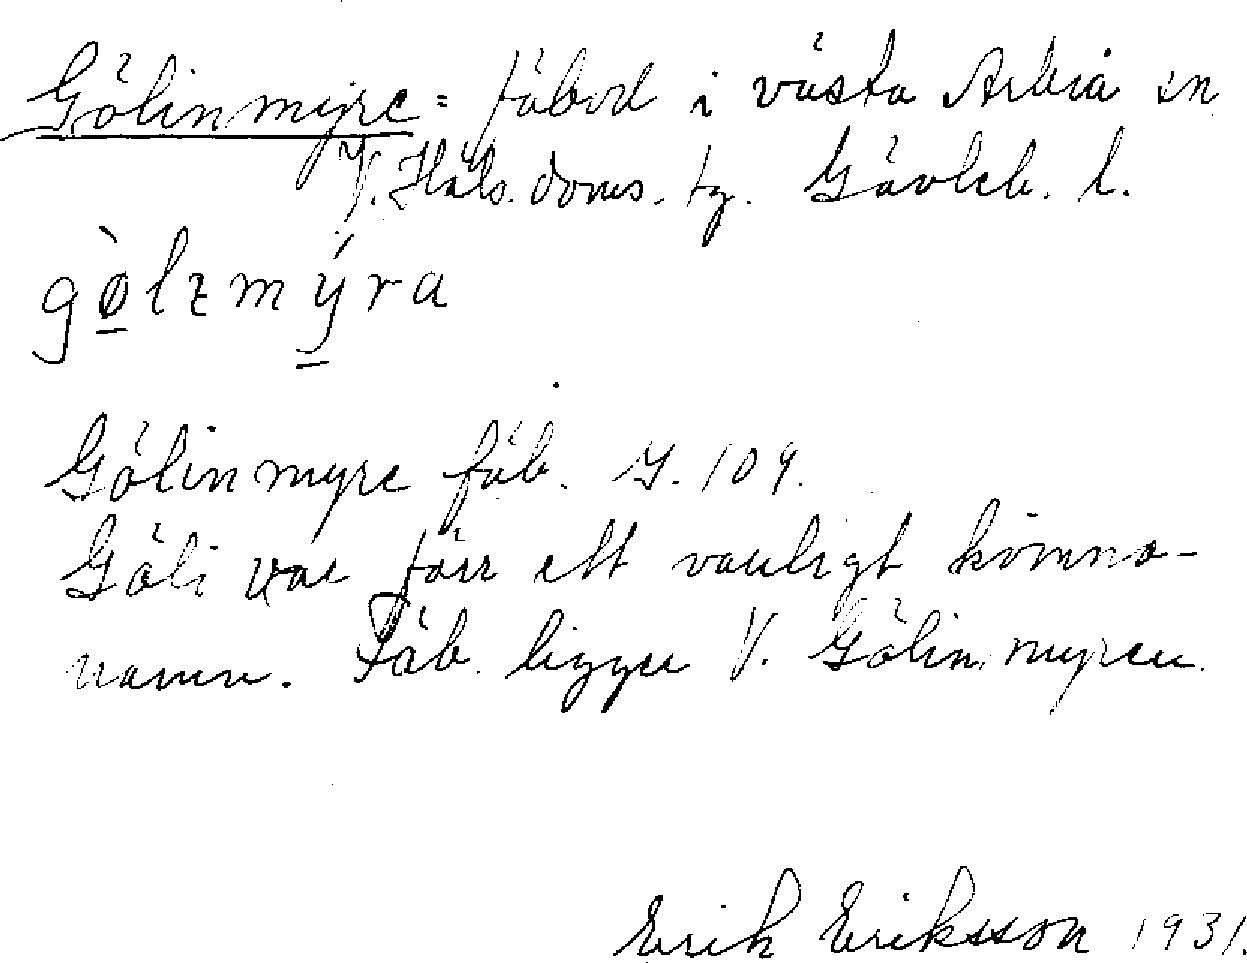 Gölinmyre = fäbod i västa Arbrå sn
V. Häls. doms. tg. Gävleb. l.
gø̀lɪmýra
Gölinmyre fäb. J. 109.
Göli var förr ett vanligt kvinno-
namn. Fäb. ligger V. Gölinmyren.
Erik Eriksson 1931.